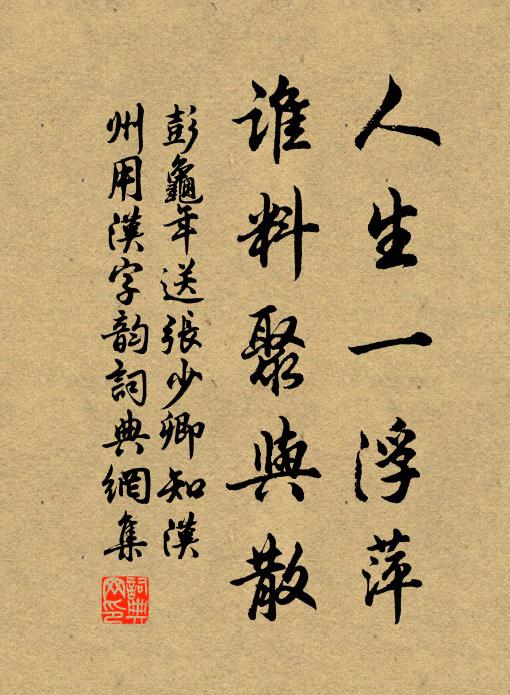 人生一浮萍
谁料聚與散
彭龜年送張少卿知漢
州用漢字韵詞典網集
詞典
网印